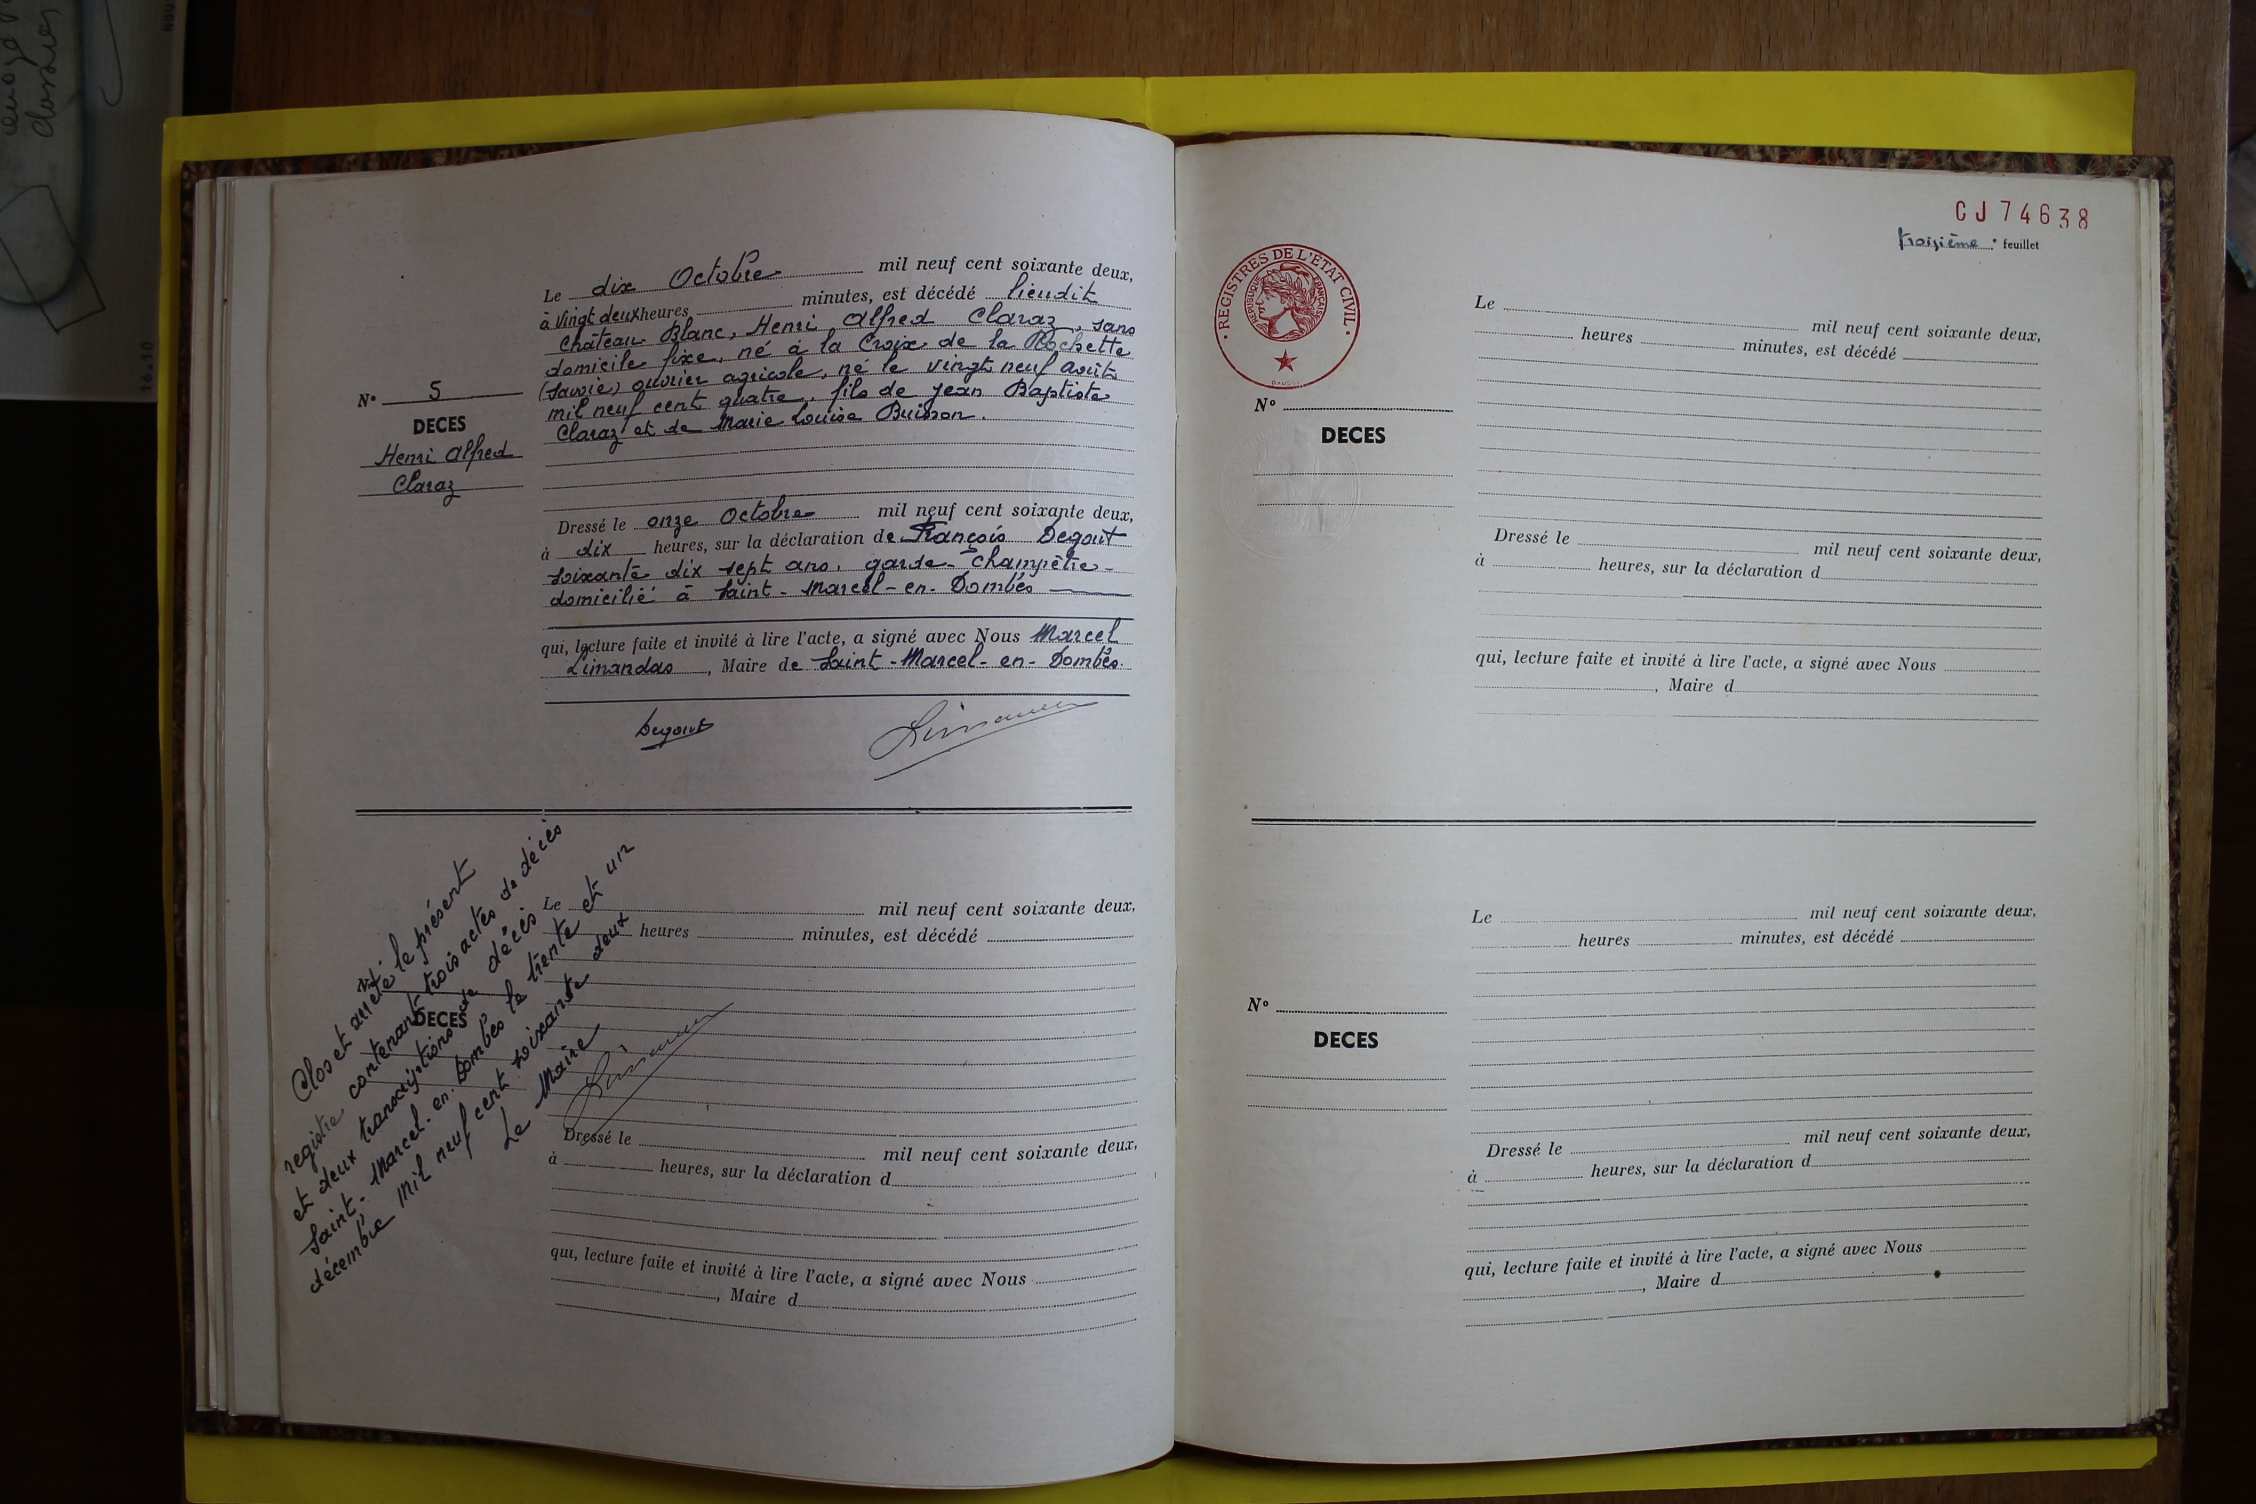 Le dix Octobre mil neuf cent soixante deux,
à vingt deux heures minutes, est décédé lieudit
Château Blanc, Henri Alfred Claraz, sans
domicile fixe, né à la Croix de la Rochette
(Savoie) ouvrier agricole, né le vingt neuf août
mil neuf cent quatre, fils de Jean Baptiste
Claraz et de Marie Louise Buisson.
N° 5
DECES
Henri Alfred
Claraz
Dressé le onze Octobre mil neuf cent soixante deux,
à dix heures, sur la déclaration de François Degout
soixante dix sept ans, garde-champêtre
domicilié à Saint-Marcel-en-Dombes
qui, lecture faite et invité à lire l'acte, a signé avec Nous Marcel
Limandas, Maire de Saint-Marcel-en-Dombes.
Degout
Clos et arrêté le présent
registre contenant trois actes de décès
et deux transcriptions de décès
Saint-Marcel-en-Dombes le trente et un
décembre mil neuf cent soixante deux
Le Maire
Le mil neuf cent soixante deux,
heures minutes, est décédé
N°
DECES
Dressé le mil neuf cent soixante deux,
à heures, sur la déclaration d
qui, lecture faite et invité à lire l'acte, a signé avec Nous
, Maire d
CJ 74638
troisième feuillet
REGISTRES DE L'ÉTAT CIVIL
RÉPUBLIQUE FRANÇAISE
Le mil neuf cent soixante deux,
heures minutes, est décédé
N°
DECES
Dressé le mil neuf cent soixante deux,
à heures, sur la déclaration d
qui, lecture faite et invité à lire l'acte, a signé avec Nous
, Maire d
Le mil neuf cent soixante deux,
heures minutes, est décédé
N°
DECES
Dressé le mil neuf cent soixante deux,
à heures, sur la déclaration d
qui, lecture faite et invité à lire l'acte, a signé avec Nous
, Maire d